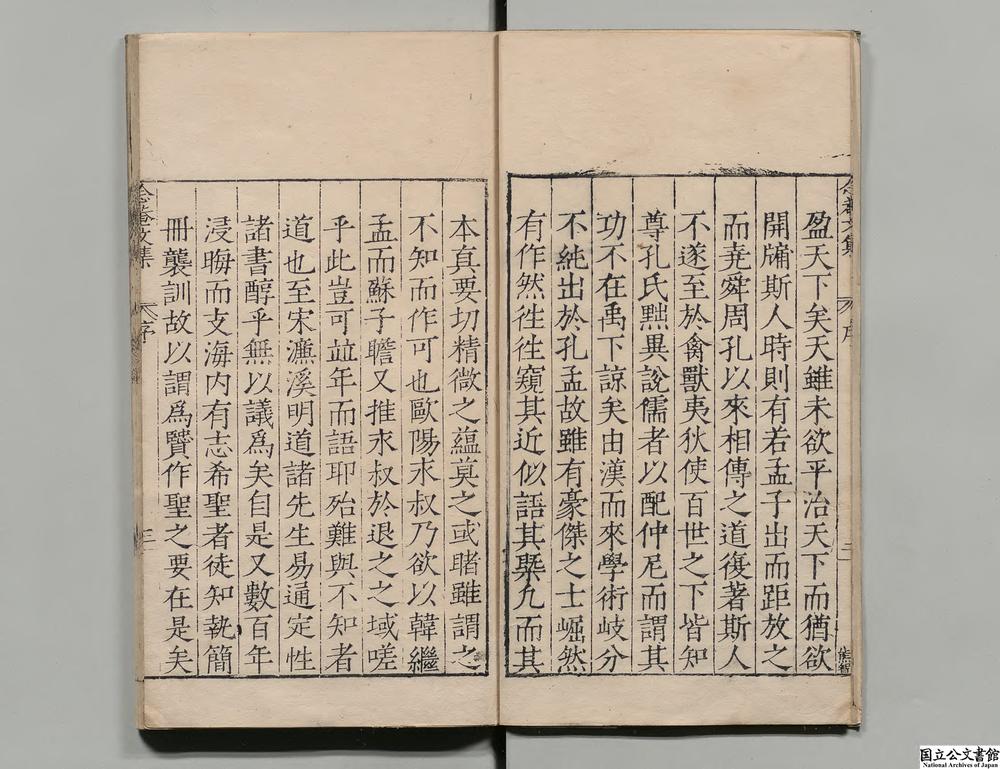 念菴文集 序 二
盈天下矣天雖未欲平治天下而猶欲
開牖斯人時則有若孟子出而距放之
而堯舜周孔以來相傳之道復著斯人
不遂至於禽獸夷狄使百世之下皆知
尊孔氏黜異說儒者以配仲尼而謂其
功不在禹下諒矣由漢而來學術岐分
不純出於孔孟故雖有豪傑之士崛然
有作然徃徃窺其近似語其槩九而其
本真要切精微之蘊莫之或睹雖謂之
不知而作可也歐陽永叔乃欲以韓繼
孟而蘇子瞻又推永叔於退之之域嗟
乎此豈可竝年而語耶殆難與不知者
道也至宋濂溪明道諸先生易通定性
諸書醇乎無以議爲矣自是又數百年
浸晦而攴海內有志希聖者徒知執簡
冊襲訓故以謂爲贒作聖之要在是矣
念菴文集 序 三
国立公文書館
National Archives of Japan